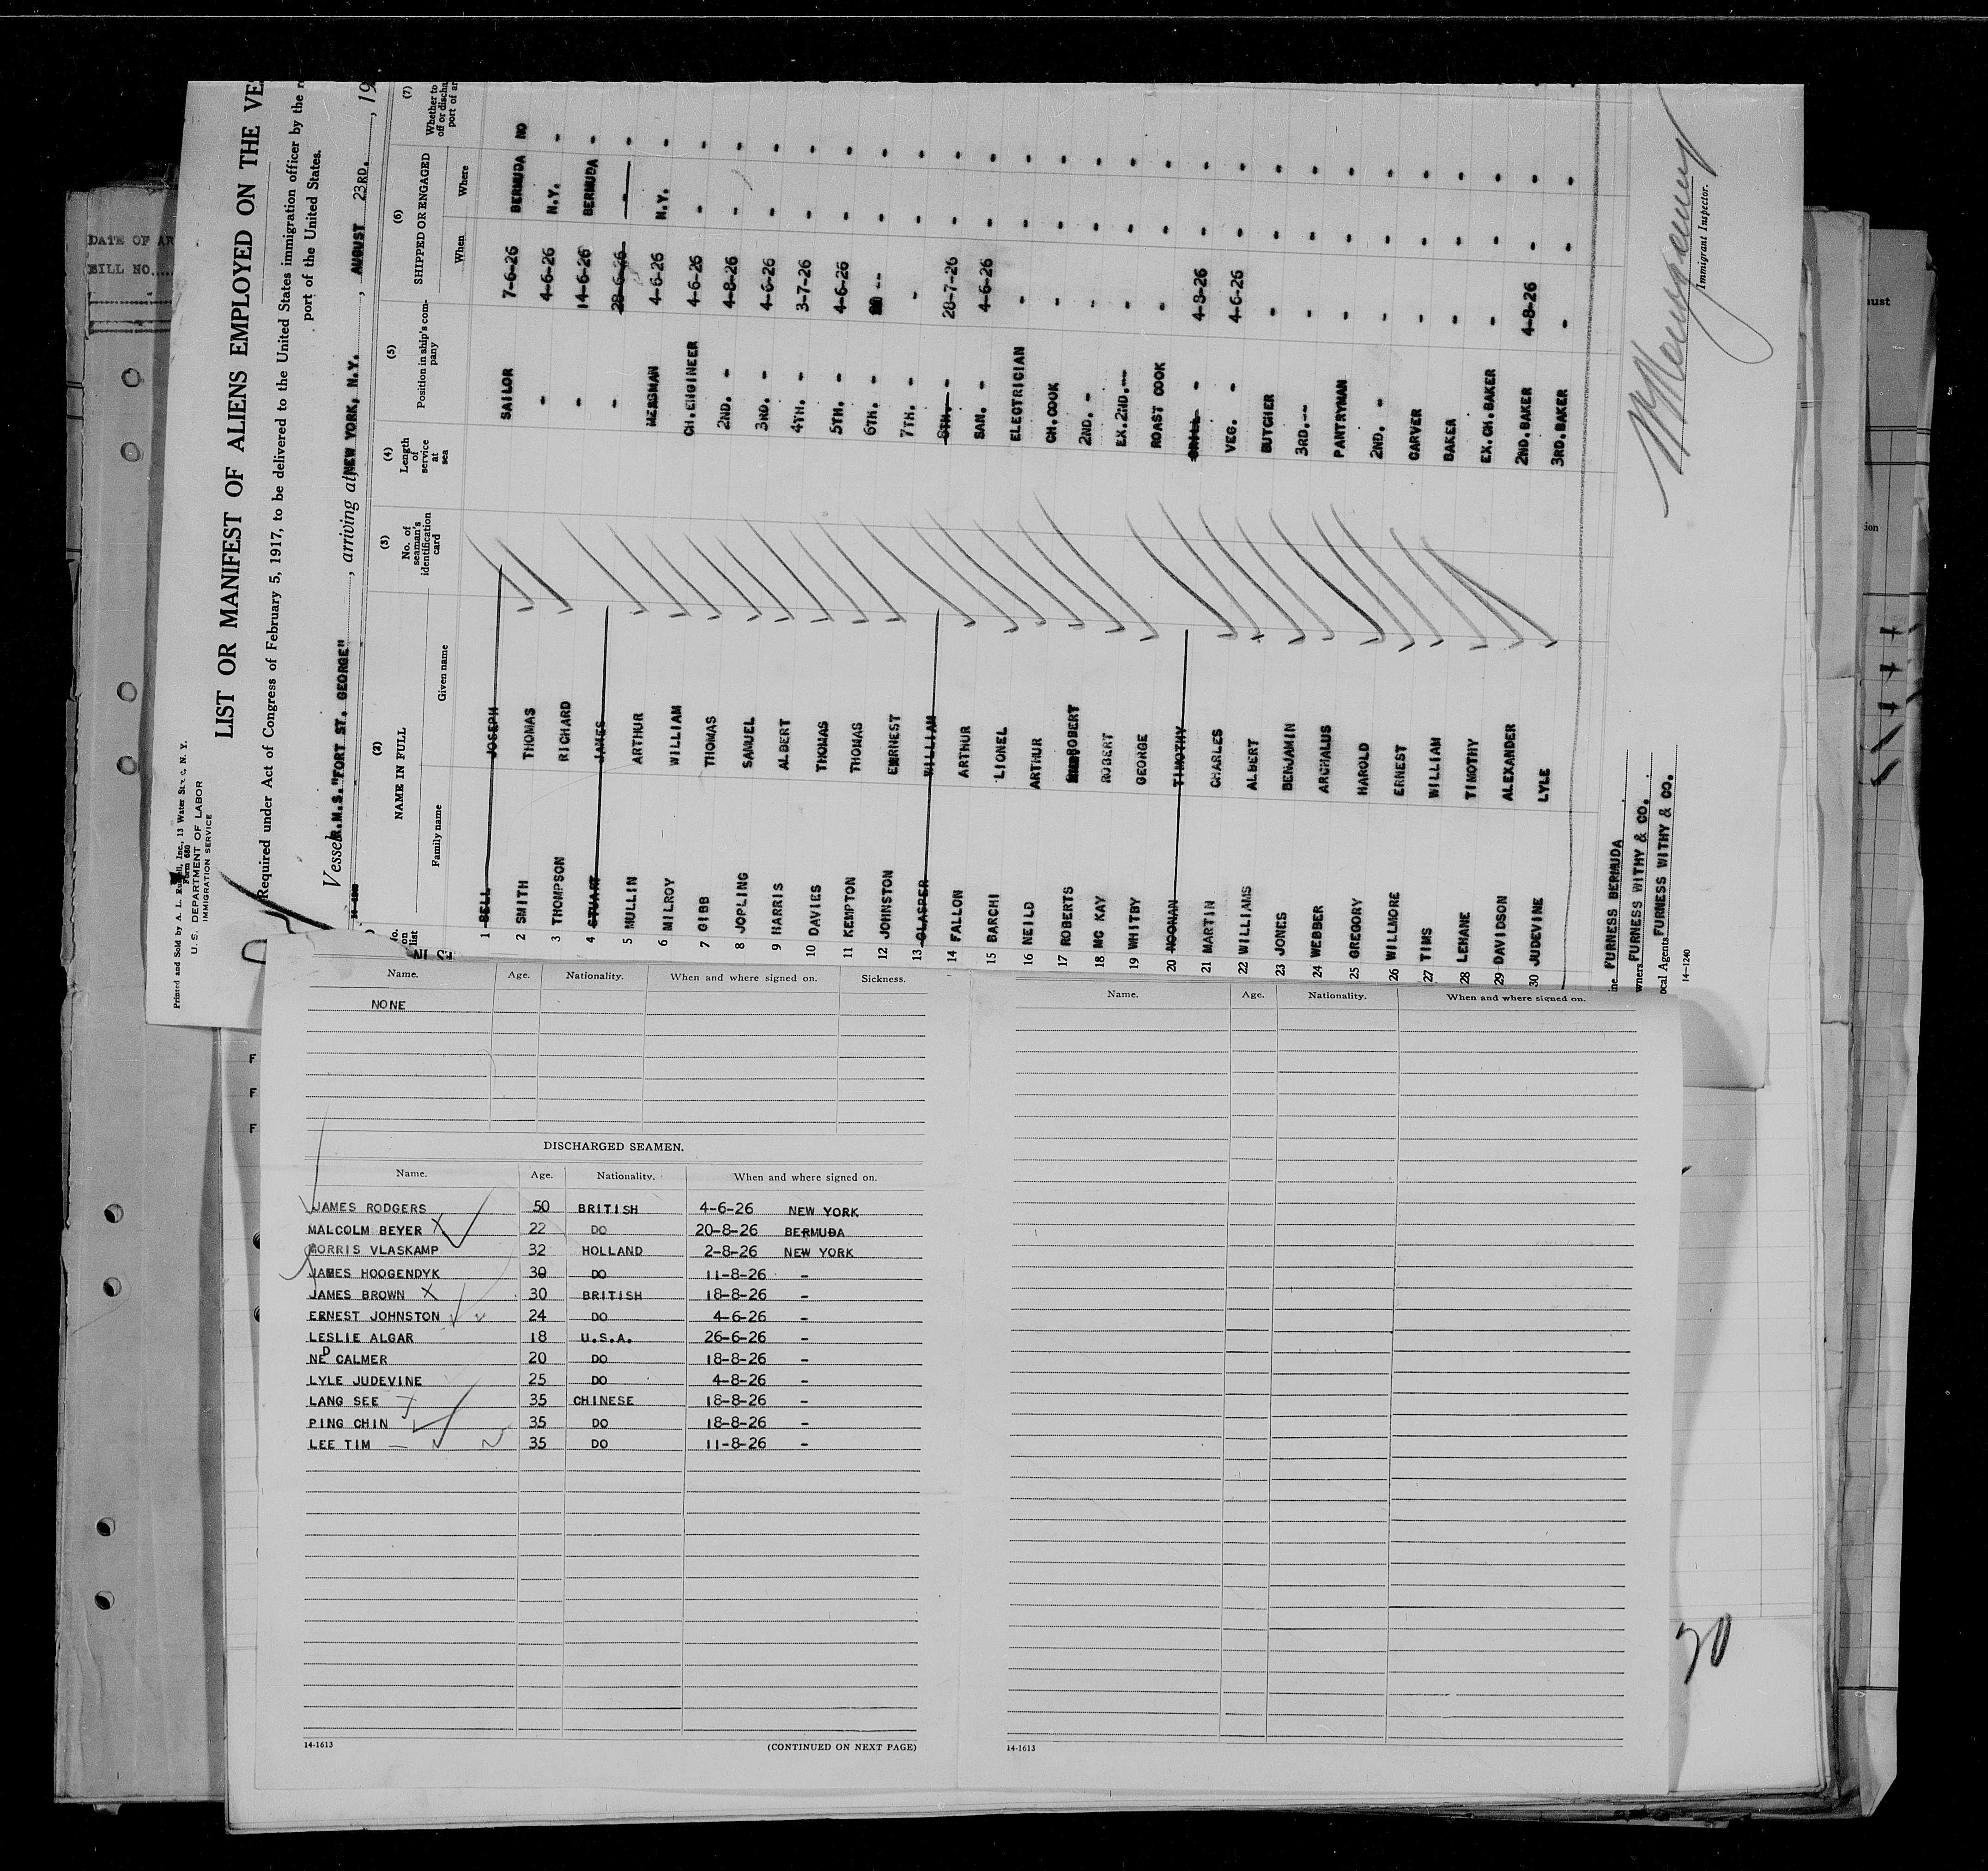 DATE OF AR
BILL NO....
Printed and Sold by A. L. Russell, Inc., 13 Water St., N. Y.
Form 680
U. S. DEPARTMENT OF LABOR
IMMIGRATION SERVICE
LIST OR MANIFEST OF ALIENS EMPLOYED ON THE VE
Required under Act of Congress of February 5, 1917, to be delivered to the United States immigration officer by the r
port of the United States.
Vessel R.M.S."FORT ST. GEORGE", arriving at NEW YORK, N.Y., AUGUST 23RD., 19
No. on list
(2) NAME IN FULL
Family name Given name
(3) No. of seaman's identification card
(4) Length of service at sea
(5) Position in ship's company
(6) SHIPPED OR ENGAGED
When Where
(7) Whether to off or discha port of ar
1 BELL JOSEPH SAILOR 7-6-26 BERMUDA NO
2 SMITH THOMAS - 4-6-26 N.Y. -
3 THOMPSON RICHARD - 14-6-26 BERMUDA -
4 STUART JAMES - 28-6-26 - -
5 MULLIN ARTHUR MESSMAN 4-6-26 N.Y. -
6 MILROY WILLIAM CH.ENGINEER 4-6-26 - -
7 GIBB THOMAS 2ND. - 4-8-26 - -
8 JOPLING SAMUEL 3RD. - 4-6-26 - -
9 HARRIS ALBERT 4TH. - 3-7-26 - -
10 DAVIES THOMAS 5TH. - 4-6-26 - -
11 KEMPTON THOMAS 6TH. - -- - -
12 JOHNSTON ERNEST 7TH. - - - -
13 GLASPER WILLIAM 8TH. - 28-7-26 - -
14 FALLON ARTHUR SAN. - 4-6-26 - -
15 BARCHI LIONEL ELECTRICIAN - - -
16 NEILD ARTHUR CH.COOK - - -
17 ROBERTS ROBERT 2ND. - - - -
18 MC KAY ROBERT EX.2ND.-- - - -
19 WHITBY GEORGE ROAST COOK - - -
20 NOONAN TIMOTHY GRILL - 4-8-26 - -
21 MARTIN CHARLES VEG. - 4-6-26 - -
22 WILLIAMS ALBERT BUTCHER - - -
23 JONES BENJAMIN 3RD.-- - - -
24 WEBBER ARCHALUS PANTRYMAN - - -
25 GREGORY HAROLD 2ND. - - - -
26 WILLMORE ERNEST CARVER - - -
27 TIMS WILLIAM BAKER - - -
28 LEHANE TIMOTHY EX.CH.BAKER - - -
29 DAVIDSON ALEXANDER 2ND.BAKER 4-8-26 - -
30 JUDEVINE LYLE 3RD.BAKER - - -
ine FURNESS BERMUDA
wners FURNESS WITHY & CO.
ocal Agents FURNESS WITHY & CO.
14-1240
Immigrant Inspector.
Name. Age. Nationality. When and where signed on. Sickness.
NONE
DISCHARGED SEAMEN.
Name. Age. Nationality. When and where signed on.
JAMES RODGERS 50 BRITISH 4-6-26 NEW YORK
MALCOLM BEYER X 22 DO 20-8-26 BERMUDA
MORRIS VLASKAMP 32 HOLLAND 2-8-26 NEW YORK
JAMES HOOGENDYK 30 DO 11-8-26 -
JAMES BROWN X 30 BRITISH 18-8-26 -
ERNEST JOHNSTON 24 DO 4-6-26 -
LESLIE ALGAR 18 U.S.A. 26-6-26 -
NED CALMER 20 DO 18-8-26 -
LYLE JUDEVINE 25 DO 4-8-26 -
LANG SEE 35 CHINESE 18-8-26 -
PING CHIN 35 DO 18-8-26 -
LEE TIM 35 DO 11-8-26 -
14-1613
(CONTINUED ON NEXT PAGE)
Name. Age. Nationality. When and where signed on.
14-1613
F
F
F
ust
ion